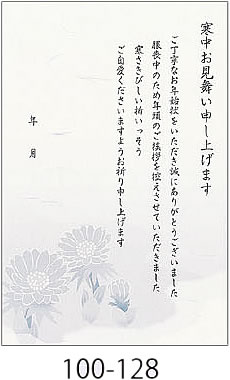 寒中お見舞い申し上げます
ご丁寧なお年始状をいただき誠にありがとうございました
服喪中のため年頭のご挨拶を控えさせていただきました
寒さきびしい折いっそう
ご自愛くださいますようお祈り申し上げます
年　月
100-128